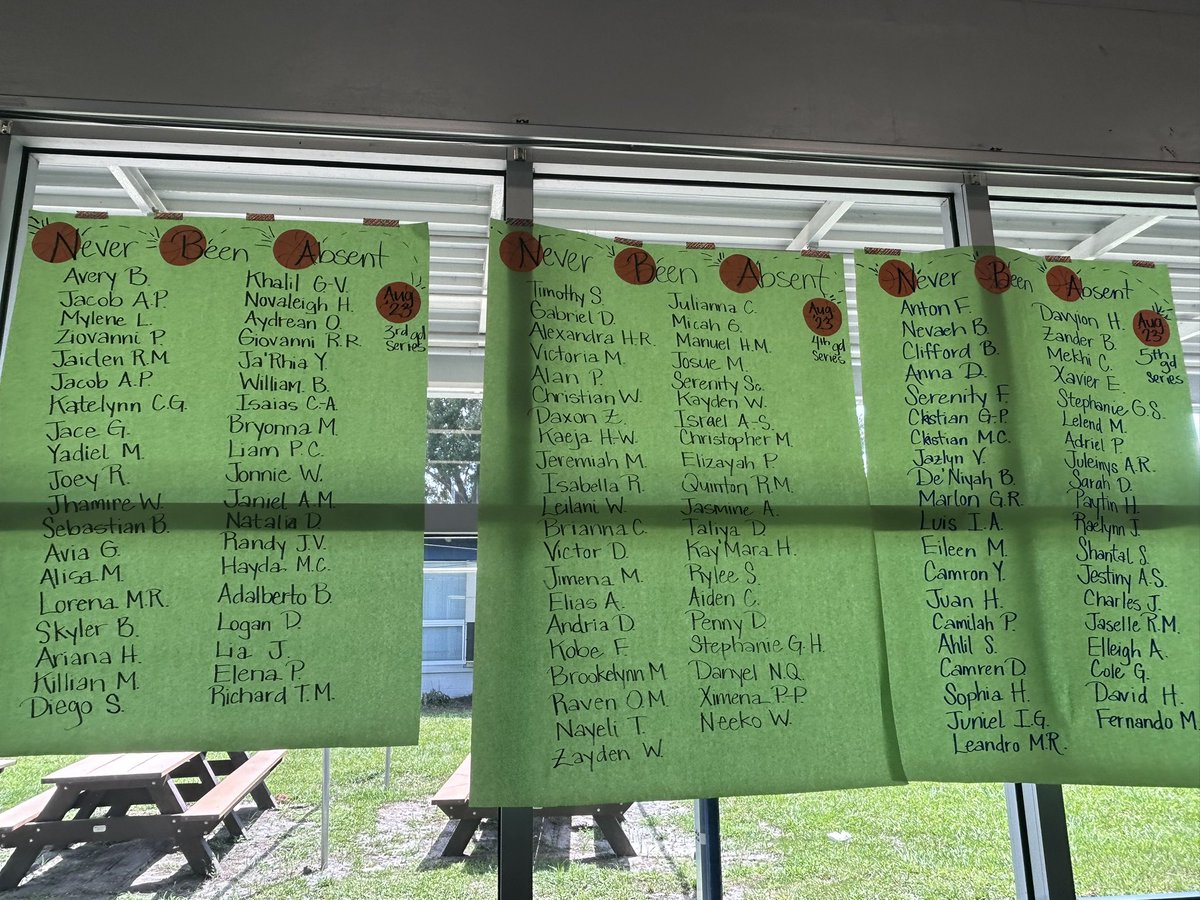 Never Been Absent
Aug '23
3rd gd
series
Avery B.
Jacob A.P.
Mylene L.
Ziovanni P.
Jaiden R.M
Jacob A.P.
Katelynn C.G.
Jace G.
Yadiel M.
Joey R.
Jhamire W.
Sebastian B.
Avia G.
Alisa M.
Lorena M.R.
Skyler B.
Ariana H.
Killian M.
Diego S.
Khalil G-V.
Novaleigh H.
Aydrean O.
Giovanni R.R.
Ja'Rhia Y.
William B.
Isaias C-A.
Bryonna M.
Liam P.C.
Jonnie W.
Janiel A.M.
Natalia D.
Randy J.V.
Hayda M.C.
Adalberto B.
Logan D.
Lia J.
Elena P.
Richard T.M.
Never Been Absent
Aug '23
4th gd
Series
Timothy S.
Gabriel D.
Alexandra H-R.
Victoria M.
Alan P.
Christian W.
Daxon Z.
Kaeja H-W.
Jeremiah M.
Isabella R.
Leilani W.
Brianna C.
Victor D.
Jimena M.
Elias A.
Andria D.
Kobe F.
Brookelynn M
Raven O.M.
Nayeli T.
Zayden W.
Julianna C.
Micah G.
Manuel H.M.
Josue M.
Serenity Sc.
Kayden W.
Israel A.-S.
Christopher M.
Elizayah P.
Quinton R.M.
Jasmine A.
Taliya D.
Kay'Mara H.
Rylee S.
Aiden C.
Penny D.
Stephanie G.H.
Danyel N.Q.
Ximena P-P.
Neeko W.
Never Been Absent
Aug '23
5th gd
series
Anton F.
Nevaeh B.
Clifford B.
Anna D.
Serenity F.
Christian G-P.
Christian M.C.
Jazlyn V.
De'Niyah B.
Marlon G.R.
Luis I.A.
Eileen M.
Camron Y.
Juan H.
Camilah P.
Ahlil S.
Camren D
Sophia H.
Juniel I.G.
Leandro M.R.
Davyion H.
Zander B.
Mekhi C.
Xavier E.
Stephanie G.S.
Lelend M.
Adriel P.
Juleinys A.R.
Sarah D.
Paytin H.
Raelynn J.
Shantal S.
Jestiny A-S.
Charles J.
Jaselle R.M.
Elleigh A.
Cole G.
David H.
Fernando M.